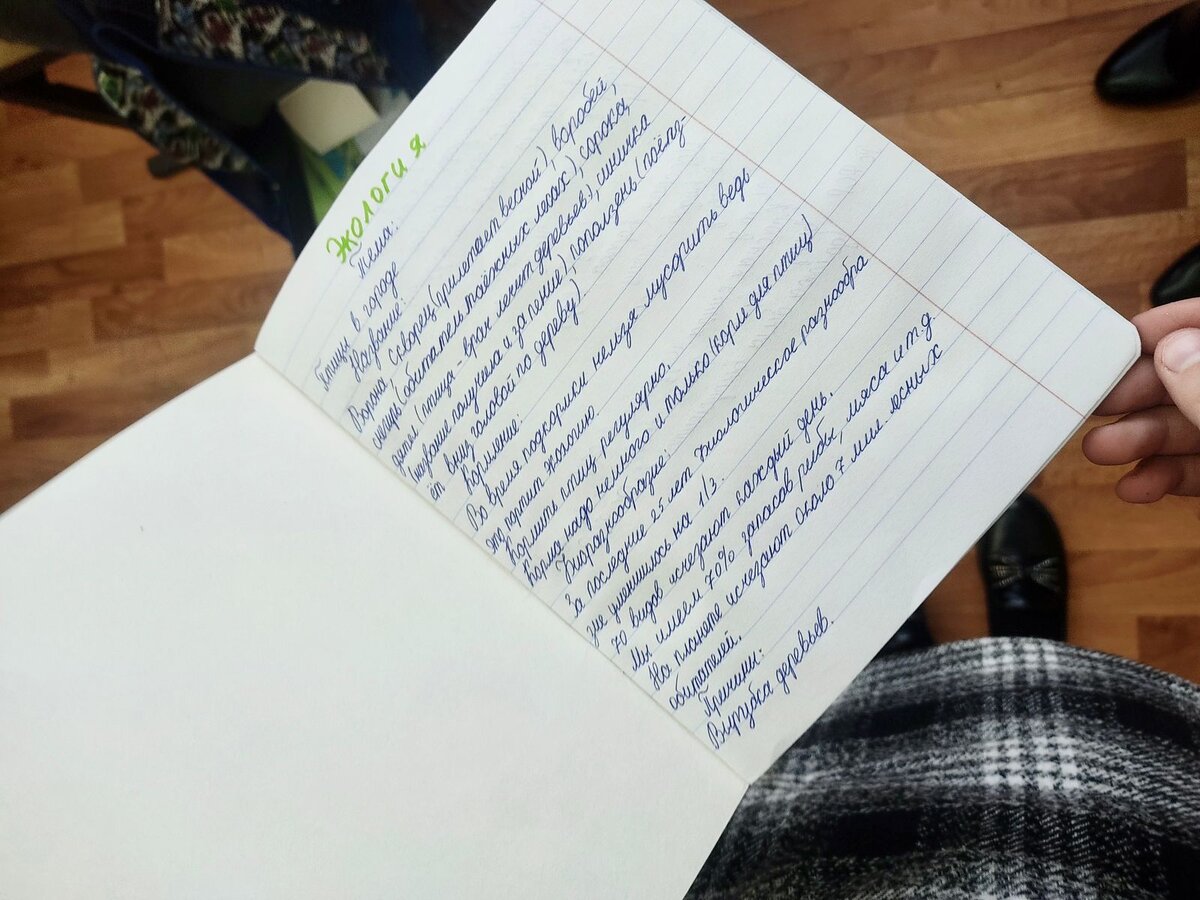 Экология
Тема:
Птицы в городе
Названий:
Ворона, скворец (прилетает весной), воробей,
снегирь (обитатель таёжных лесах), сорока,
дятел (птица-врач лечит деревьев), синичка
(название получила и за пение), поползень (поёпз-
ёт вниз головой по дереву),
Кормление:
Во время подкормки нельзя мусорить ведь
это портит экологию.
Кормить птиц регулярно.
Корма надо немного и только (корм для птиц)
Биоразнообразие:
За последние 25 лет биологическое разнообра
зие уменшилось на 1/3.
70 видов исчезают каждый день.
Мы имеем 70% запасов рыбы, мяса и т.д
На планете исчезают около 7 млн. лесных
обитателей.
Причины:
Вырубка деревьев.